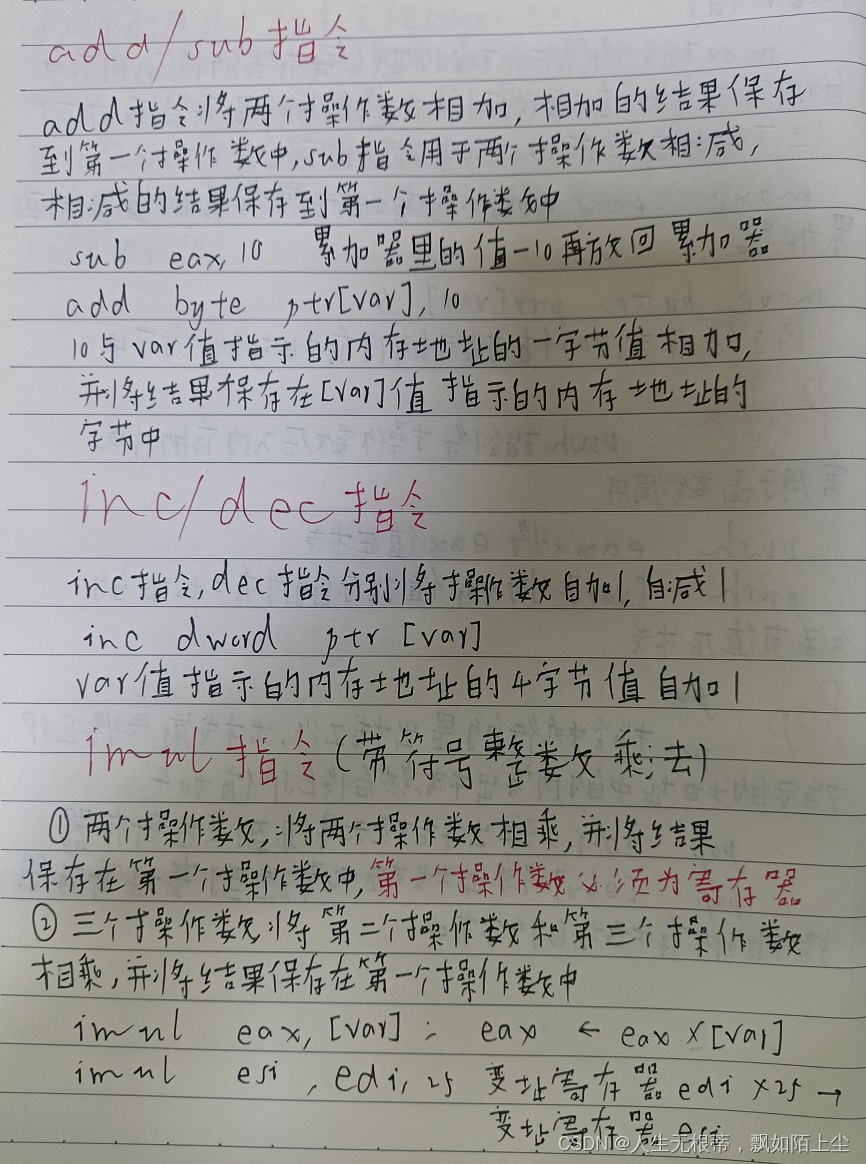 add/sub指令
add指令将两个操作数相加,相加的结果保存
到第一个操作数中,sub指令用于两个操作数相减,
相减的结果保存到第一个操作数中
sub eax, 10 累加器里的值-10再放回累加器
add byte ptr[var], 10
10与var值指示的内存地址的一字节值相加,
并将结果保存在[var]值指示的内存地址的
字节中
inc/dec指令
inc指令,dec指令分别将操作数自加1,自减1
inc dword ptr [var]
var值指示的内存地址的4字节值自加1
imul指令(带符号整数乘法)
① 两个操作数,将两个操作数相乘,并将结果
保存在第一个操作数中,第一个操作数必须为寄存器
② 三个操作数,将第二个操作数和第三个操作数
相乘,并将结果保存在第一个操作数中
imul eax, [var] ; eax ← eax × [var]
imul esi, edi, 25 变址寄存器edi ×25 →
变址寄存器esi
CSDN @人生无根蒂,飘如陌上尘